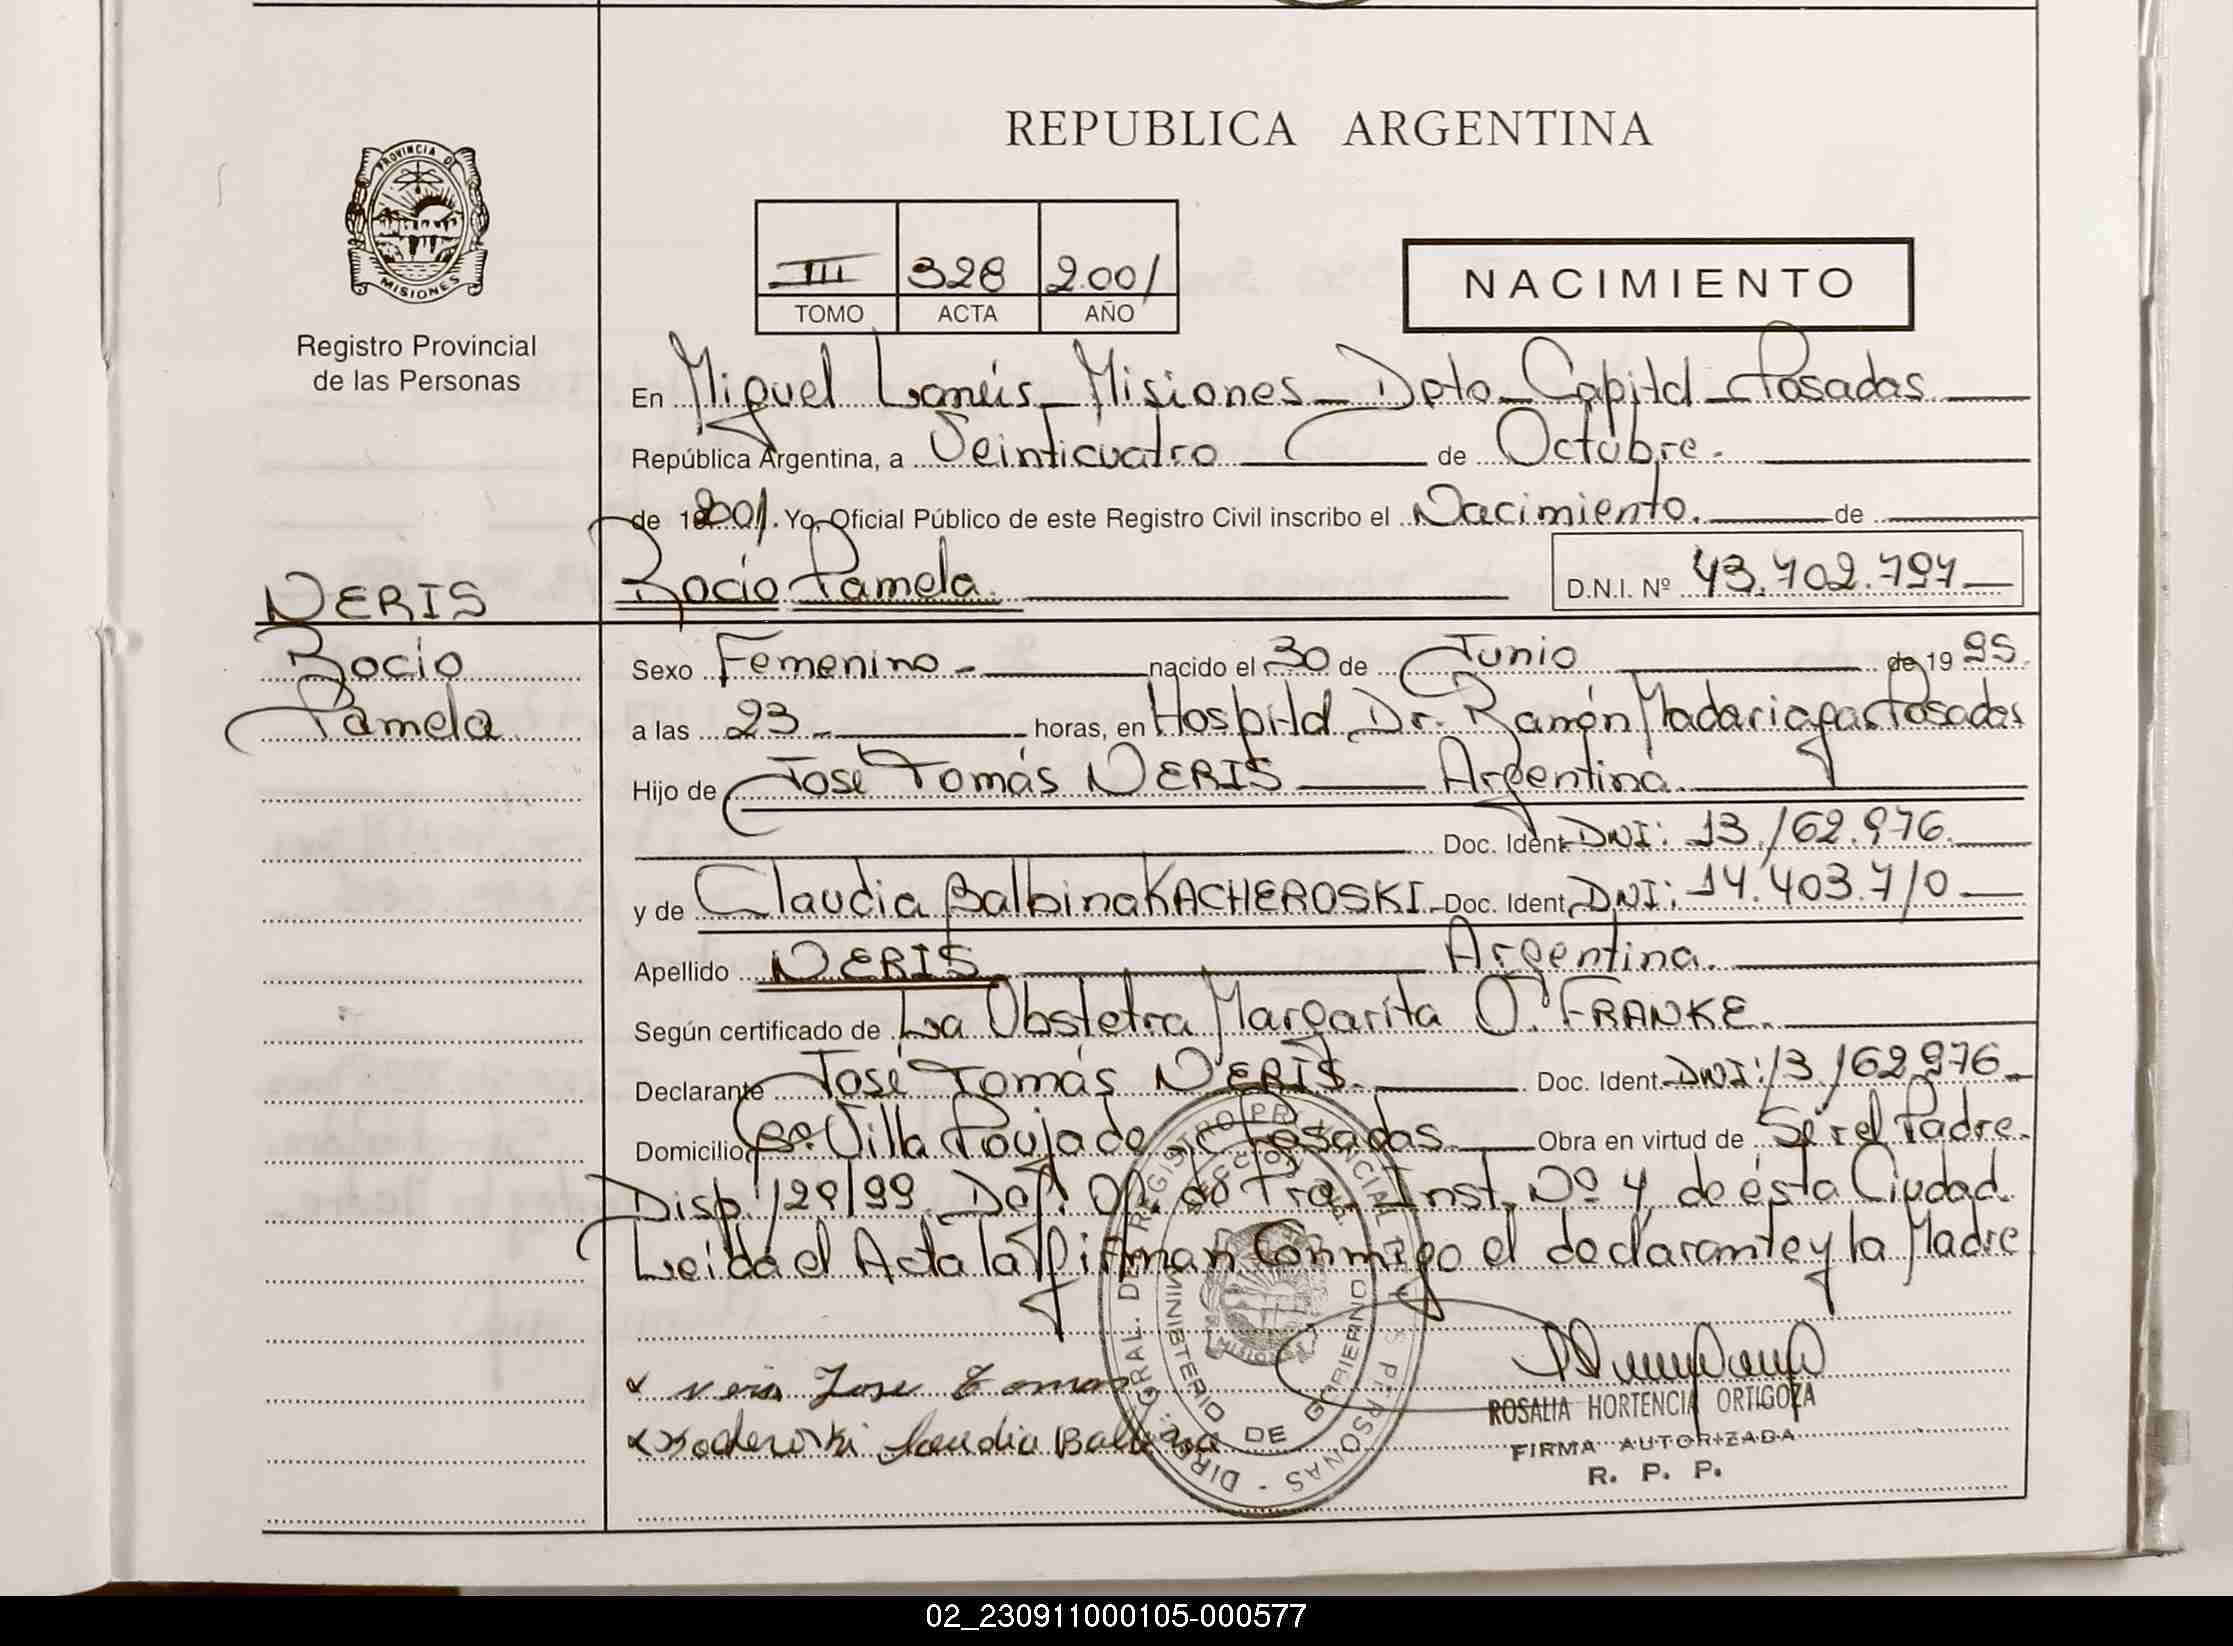 REPUBLICA ARGENTINA
PROVINCIA DE MISIONES
Registro Provincial
de las Personas
III 328 2.001
TOMO ACTA AÑO
NACIMIENTO
En Miguel Lanús_Misiones_Dpto_Capital_Posadas
República Argentina, a Veinticuatro de Octubre.
de 2001. Yo, Oficial Público de este Registro Civil inscribo el Nacimiento. de
Rocío Pamela. D.N.I. Nº 43.702.797
NERIS
Rocío
Pamela
Sexo Femenino - nacido el 30 de Junio de 1995
a las 23 horas, en Hospital Dr. Ramón Madariaga Posadas
Hijo de Jose Tomás NERIS Argentina.
Doc. Ident. DNI: 13.162.976.
y de Claudia Balbina KACHEROSKI Doc. Ident. DNI: 14.403.710
Apellido NERIS Argentina.
Según certificado de La Obstetra Margarita O. FRANKE.
Declarante José Tomás NERIS. Doc. Ident. DNI: 13162976
Domicilio Bº. Villa Poujade Posadas Obra en virtud de Ser el Padre.
Disp. 129/99. Def. Of. de Pra. Inst. Nº 4, de ésta Ciudad.
Leida el Acta la firman Conmigo el declarante y la Madre
Neris Jose Tomas
Claudia Balbina
ROSALIA HORTENCIA ORTIGOZA
FIRMA AUTORIZADA
R. P. P.
DIREC. GRAL. DEL REGISTRO PROVINCIAL DE LAS PERSONAS
MINISTERIO DE GOBIERNO
02_230911000105-000577